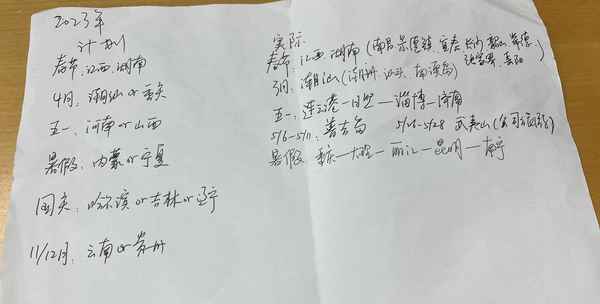 2023年
计划
春节、江西、湖南
4月、潮汕or重庆
五一、河南or山西
暑假、内蒙or宁夏
国庆、哈尔滨or吉林or辽宁
11/12月、云南or贵州
实际
春节、江西 湖南(南昌 景德镇、宜春、长沙 韶山 常德、
张家界、岳阳)
3月、潮汕(潮州 汕头 南澳岛)
五一、连云港—日照—淄博—济南
5/6-5/11、普吉岛 5/26-5/28 武夷山(公司旅游)
暑假 重庆—大理—丽江—昆明—南宁